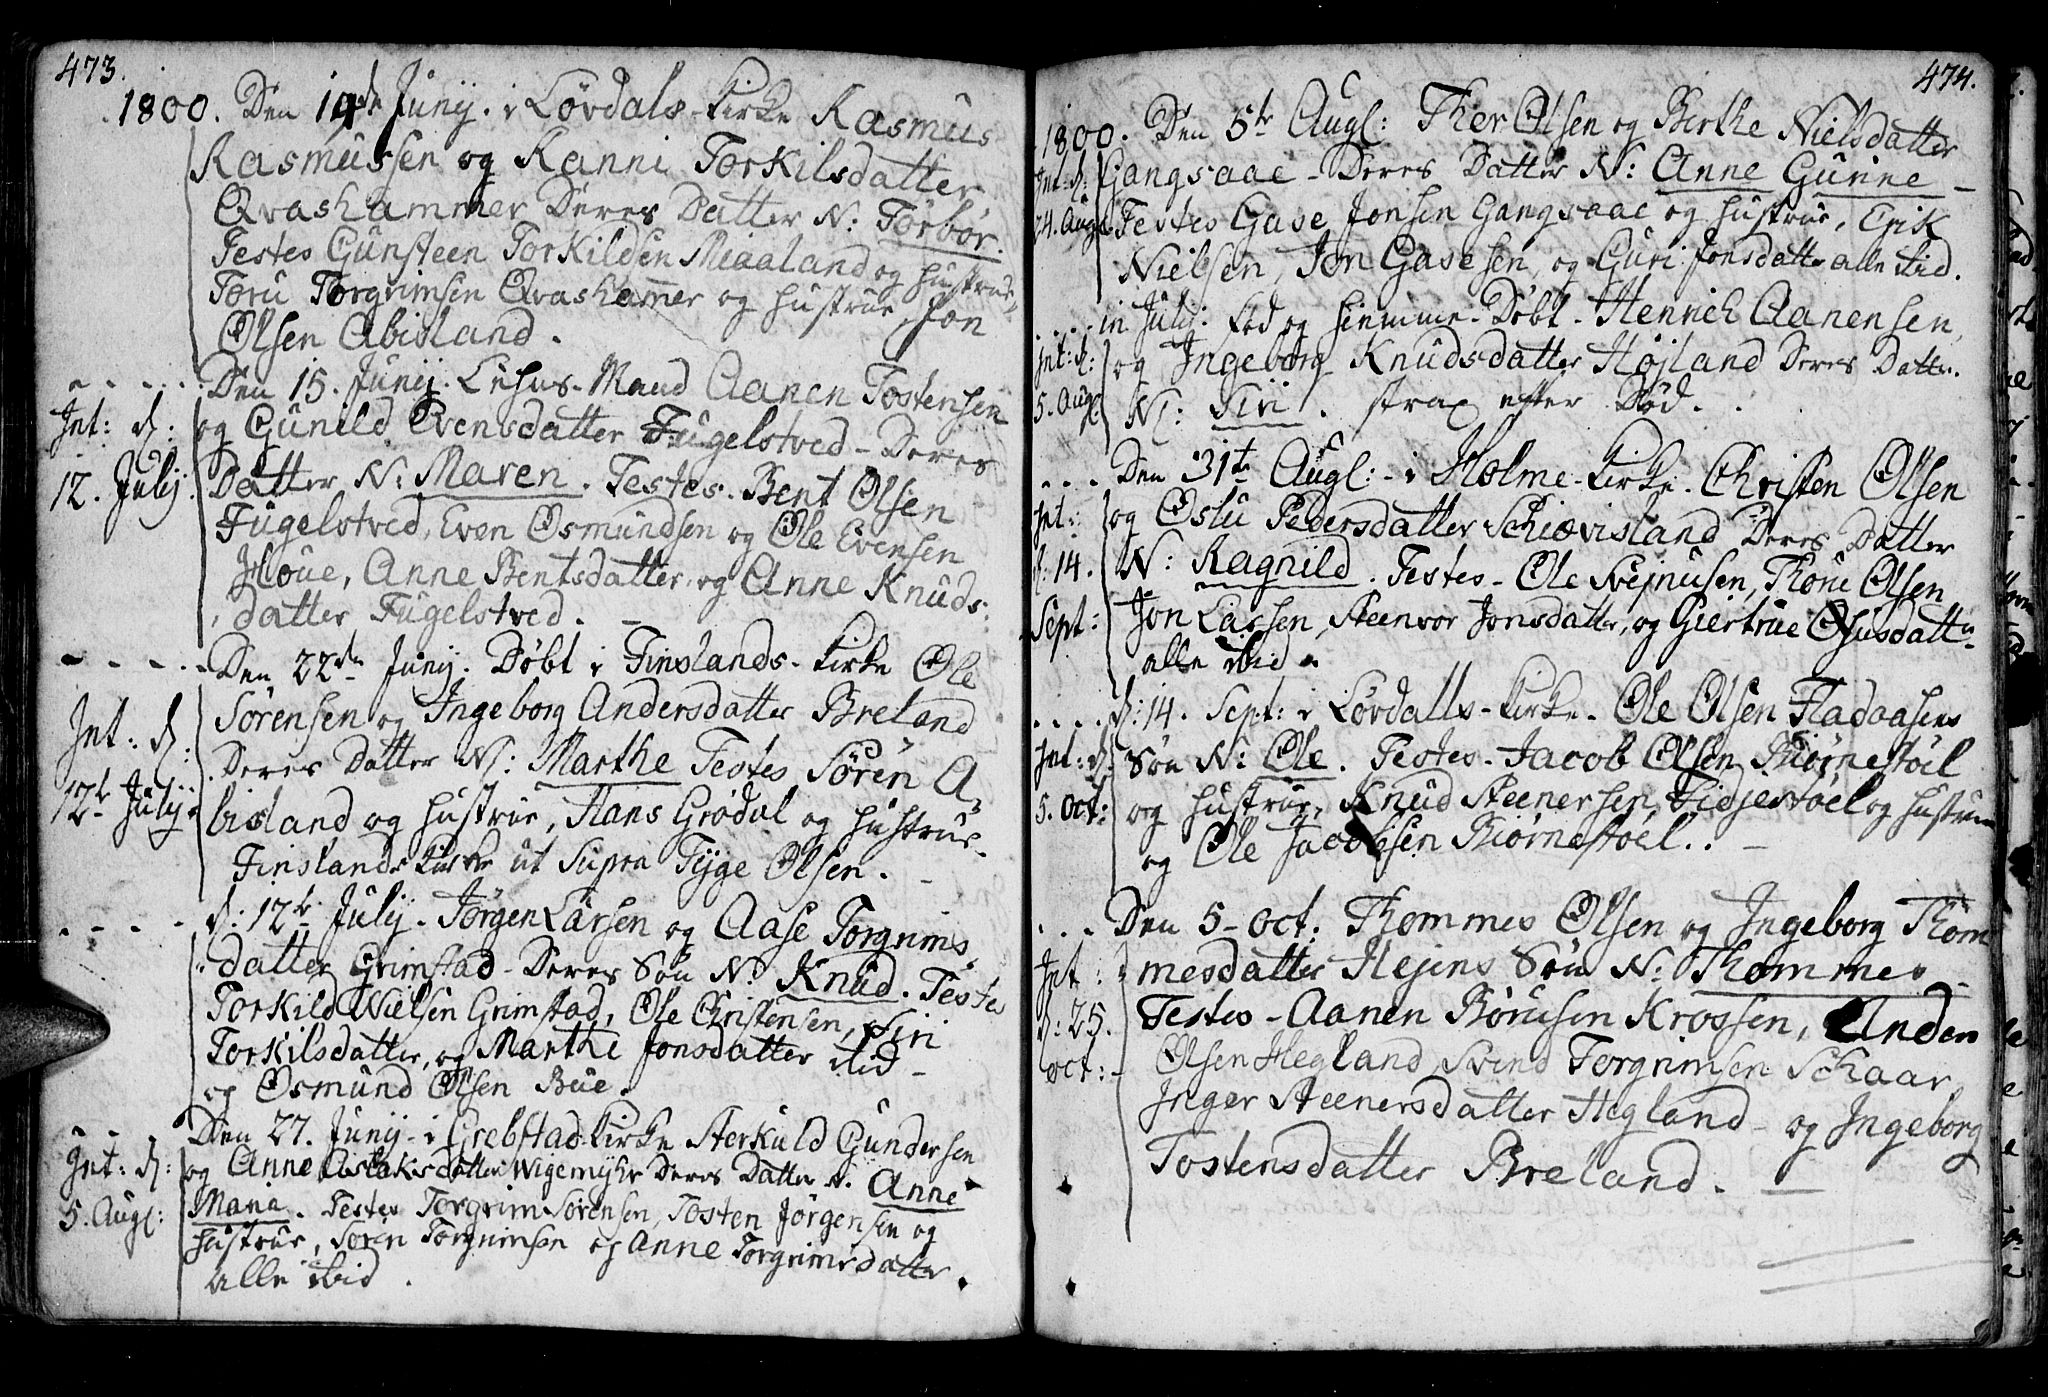 473.
1800. Den 14de Junij. i Løvdals-kirke Rasmus
Rasmussen og Ranni Torkilsdatter
Qvashammer Deres Datter N: Torbør.
Testes Gunsteen Torkildsen Miaaland og hustrue,
Toru Torgrimsen Qvashammer og hustrue, Jon
Olsen Abisland.
Den 15. Junij. Aanen Tostensen
Int: d: og Gunild Evensdatter Fugelstved - Deres
12. Julij. Datter N: Maren. Testes. Bent Olsen
Fugelstved, Even Osmundsen og Ole Evensen
Houe, Anne Bentsdatter, og Anne Knuds:
datter Fugelstved.
Den 22de Junij. Døbt i Finslands-kirke Ole
Sørensen og Ingeborg Andersdatter Breland
Int: d: Deres Datter N: Marthe Testes Søren A:
12te Julij. bisland og hustrue, Hans Grødal og hustrue
Finslands kirke ut supra Tyge Olsen.
d: 12te Julij. Jørgen Larsen og Aase Torgrims
datter Grimstad - Deres Søn N: Knud. Testes
Torkild Nielsen Grimstad, Ole Christensen, Siri
Torkilsdatter, og Marthe Jonsdatter ibid
og Osmund Olsen Bue.
Den 27. Junij - i Grebstad-kirke Sterkuld Gundersen
Int: d: og Anne Aslaksdatter Wigemyhr Deres Datter N. Anne
5. Augl: Maria. Testes Torgrim Sørensen, Tosten Jørgensen og
hustrue, Søren Torgrimsen og Anne Torgrimsdatter
alle ibid.
474.
1800. Den 5te Augl: Ther Olsen og Berthe Nielsdatter
Int: d: Gangsaae - Deres Datter N: Anne Gunne -
24. Augl: Testes Gase Jonsen Gangsaae og hustrue, Erik
Nielsen, Jon Gasesen, og Guri Jonsdatter alle ibid.
in Julij. Fød og hiemme-Døbt - Henrich Aanensen
Int: d: og Ingeborg Knudsdatter Højland Deres Datter
5. Augl: N: Siri. strax efter Død.
Den 31te Augl: - i Holme-kirke. Christen Olsen
Int: og Oslu Pedersdatter Schiævisland Deres Datter
d: 14. N: Ragnild. Testes - Ole Svejnusen, Thore Olsen
Sept: Jon Larsen, Steenvor Jonsdatter, og Giertrue Osusdatter
alle ibid.
d: 14. Sept: i Løvdalls-kirke. Ole Olsen Fladaasens
Int: d: Søn N: Ole. Testes - Jacob Olsen Biørnestøel
5. Oct: og hustrue, Knud Steenersen, Lidjestøel og hustrue
og Ole Jacobsen Biørnestøel.
Den 5 - Oct: Thommes Olsen og Ingeborg Thom
Int: mesdatter Hejens Søn N: Thommes
d: 25. Testes - Aanen Børusen Krossen, Anders
Oct: Olsen Hegland, Svend Torgrimsen Schaar,
Inger Steenersdatter Hegland - og Ingeborg
Tostensdatter Breland.